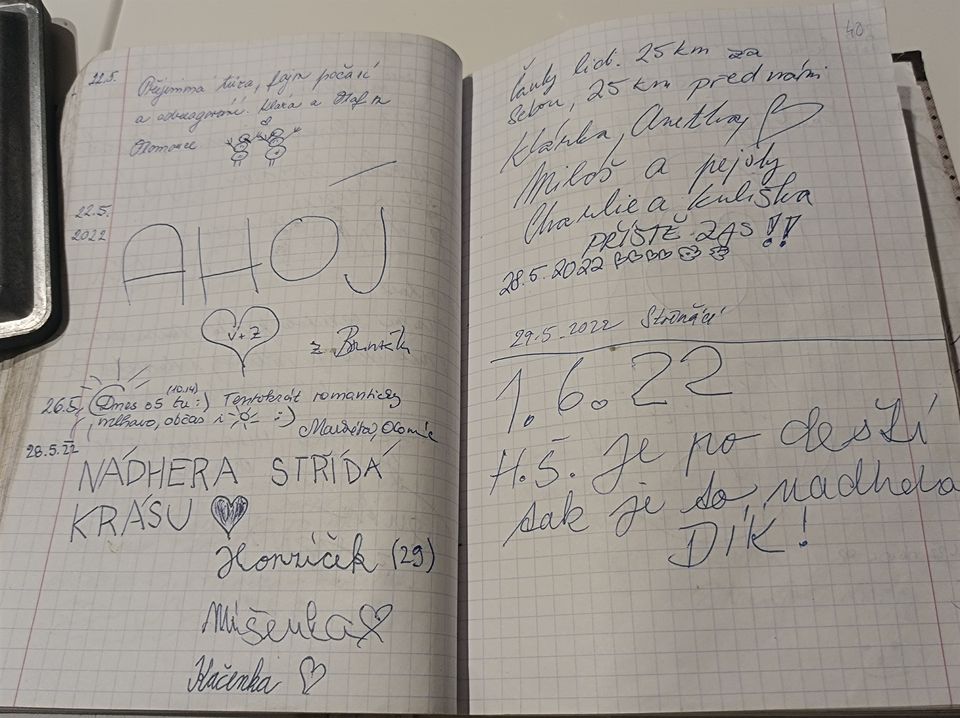 22.5.
Příjemná túra, fajn počasí
a odreagování. Klára a Olaf z
Olomouce
22.5.
2022
AHOJ
V+Z
z Bruntálu
26.5. (Dnes o5 tu :) (10.14) Tentokrát romanticky
mlhavo, občas i :)
Markéta, Olomouc
28.5.22
NÁDHERA STŘÍDÁ
KRÁSU
Honzíček (29)
Míšenka
Kačenka
40
Čauky lid. 25 km za
sebou, 25 km před námi
Klárka, Anetka,
Miloš a pejsky
Charlie a Kuliška
PŘÍŠTĚ ZAS !!
28.5.2022
29.5.2022
1.6.22
H.Š. Je po dešti
tak je to nadhera
DÍK!